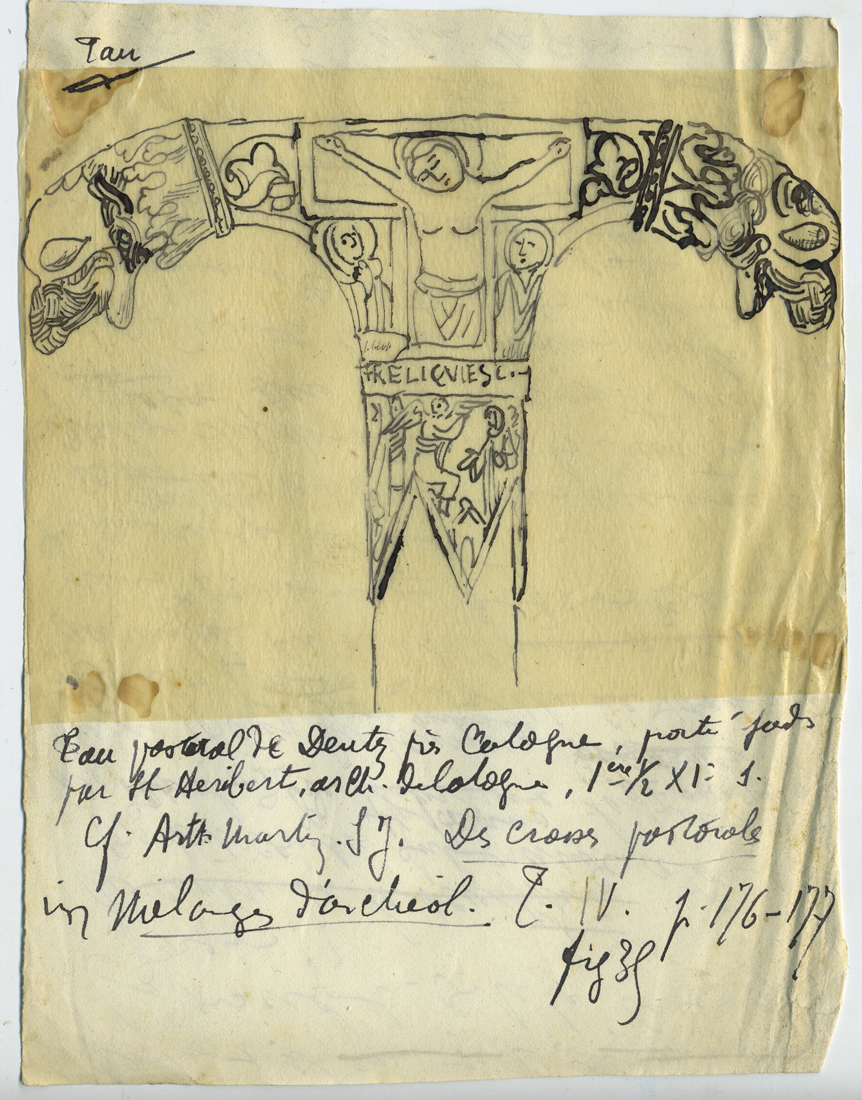 Tau
+RELIQVIESC·
Tau pastoral de Deutz près Cologne, porté jadis
par St Heribert, arch. de Cologne, 1ère 1/2 XIe s.
Cf. Arth. Martin. S J. Des crosses pastorales
in Mélanges d'archéol. T. IV. p. 176-177
fig 39